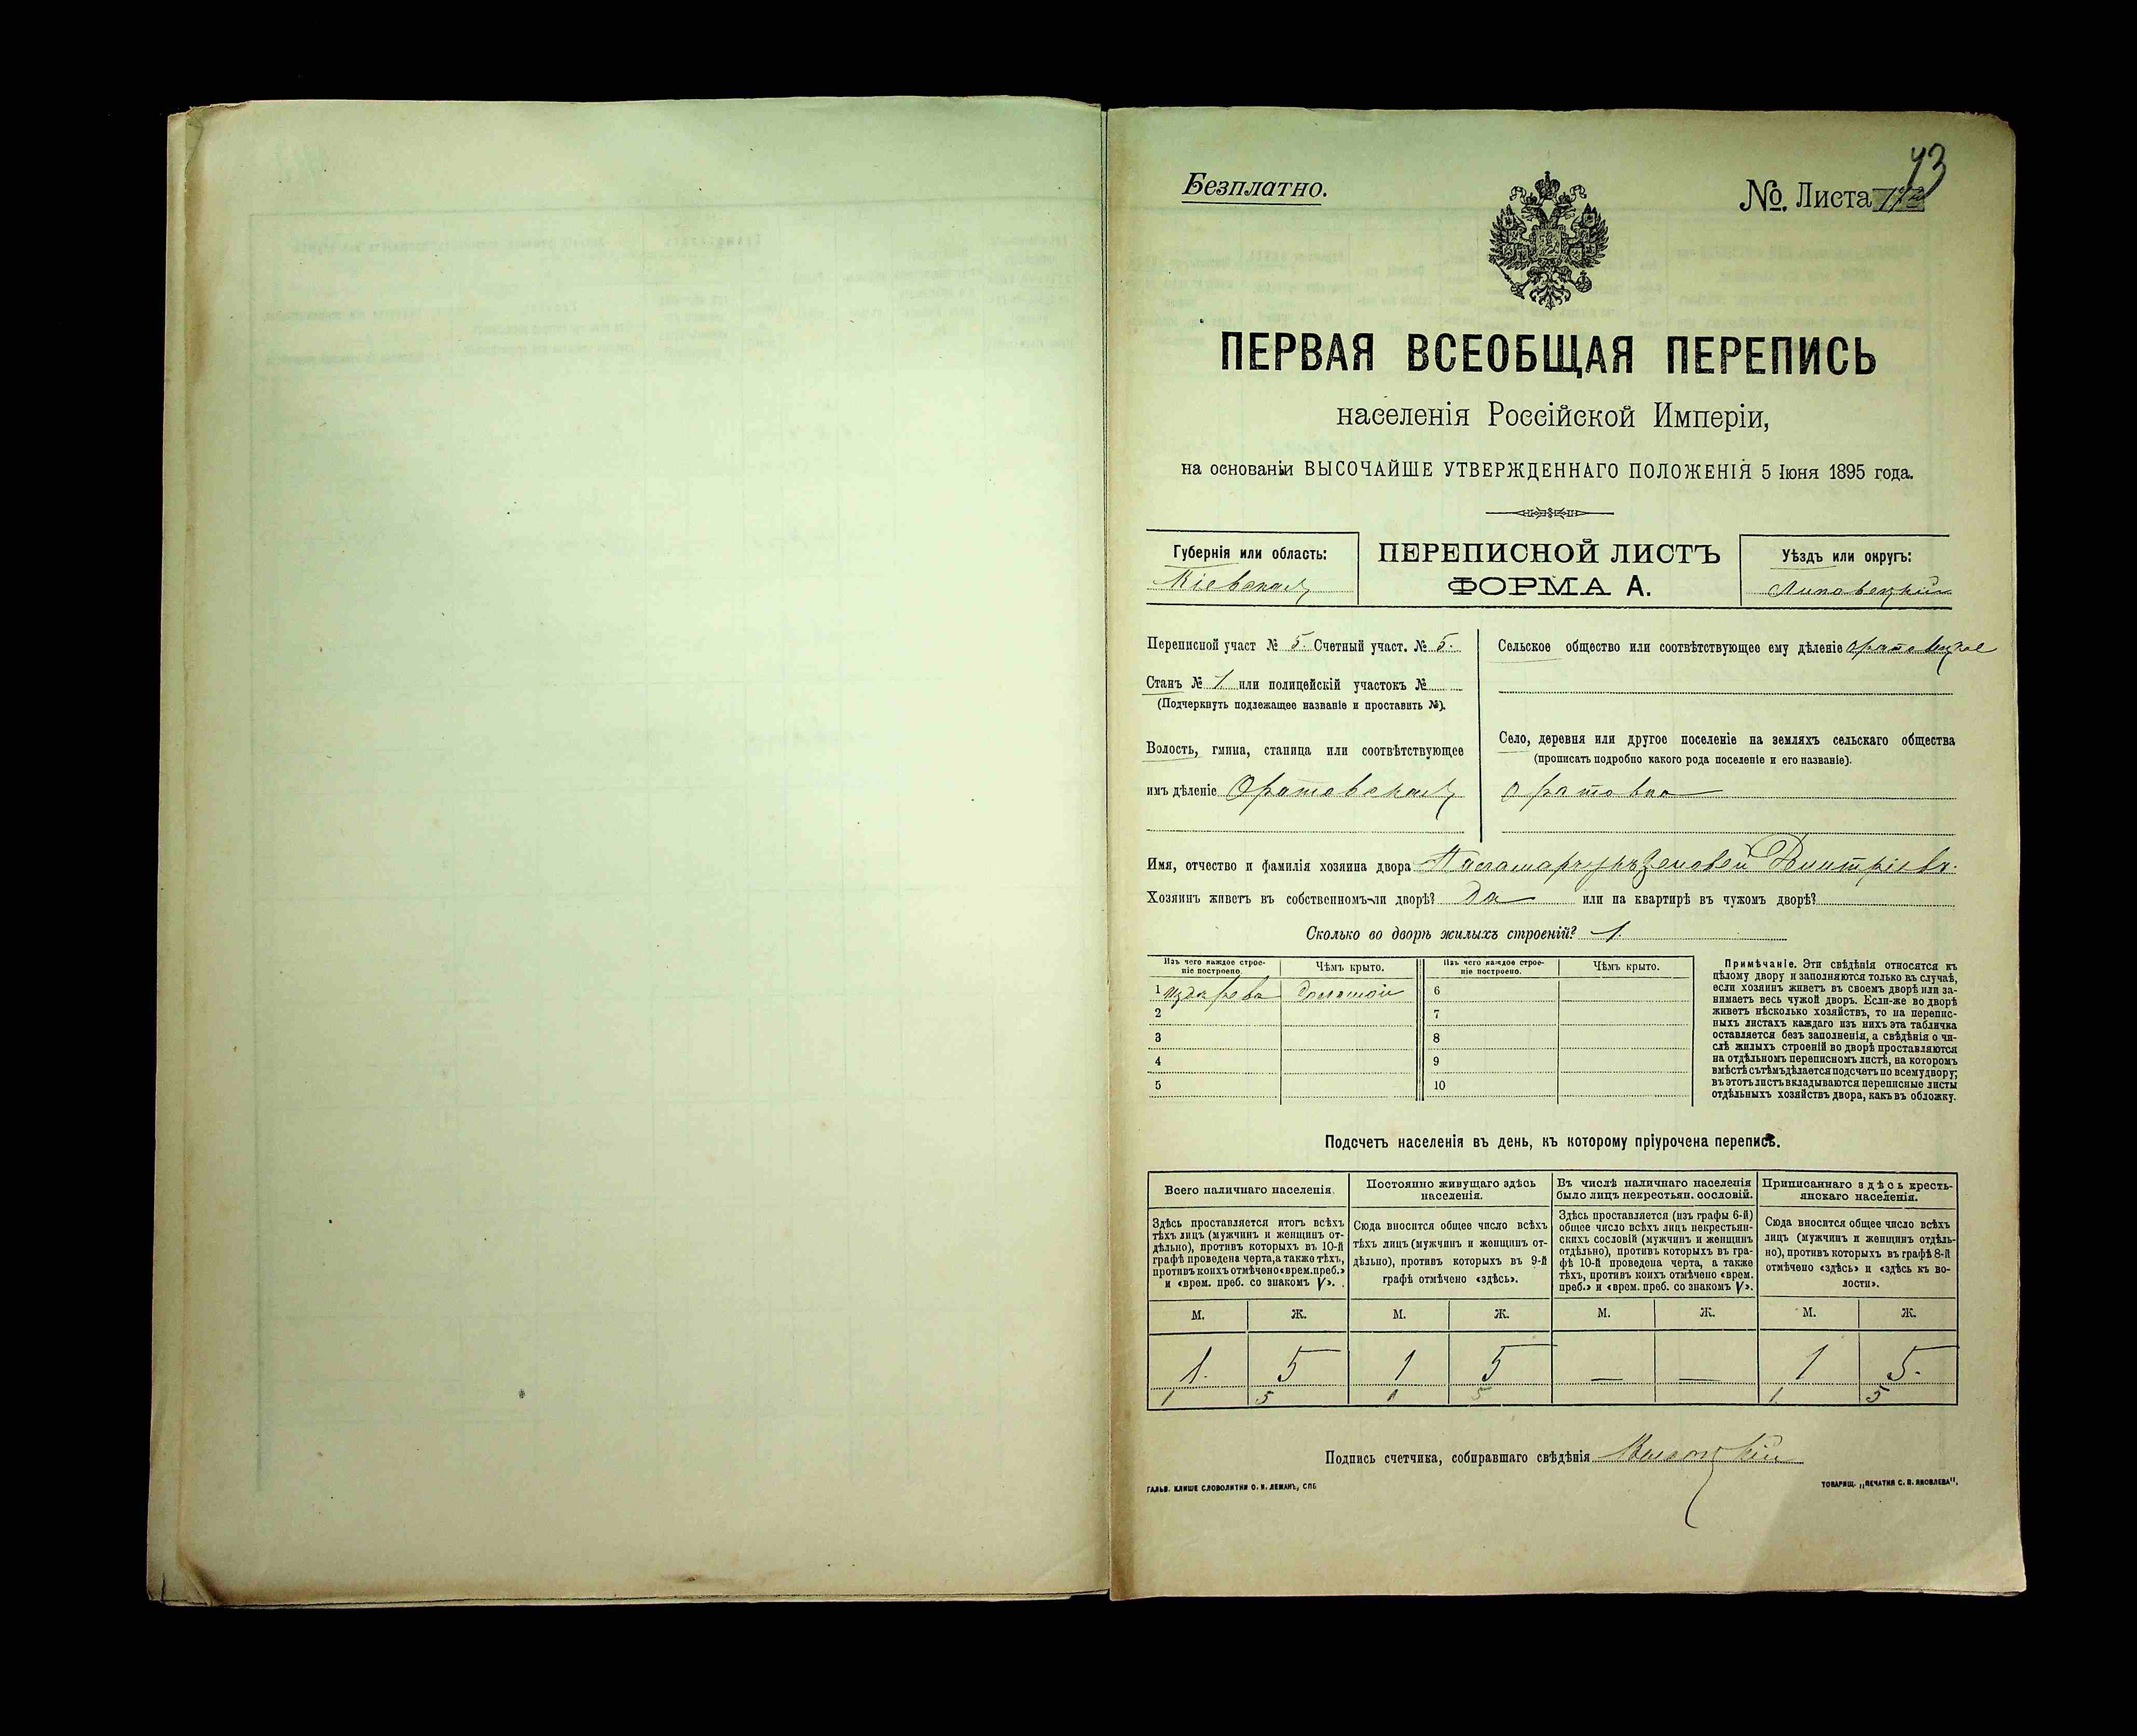 Безплатно.
№ Листа
43
ПЕРВАЯ ВСЕОБЩАЯ ПЕРЕПИСЬ
населенія Россійской Имперіи,
на основаніи ВЫСОЧАЙШЕ УТВЕРЖДЕННАГО ПОЛОЖЕНІЯ 5 Іюня 1895 года.
Губернія или область:
Кіевская
ПЕРЕПИСНОЙ ЛИСТЪ
ФОРМА А.
Уѣздъ или округъ:
Липовецкій
Переписной участ № 5. Счетный участ. № 5.
Станъ № 1. или полицейскій участокъ №
(Подчеркнуть подлежащее названіе и проставить №).
Волость, гмина, станица или соотвѣтствующее
имъ дѣленіе Оратовская
Сельское общество или соотвѣтствующее ему дѣленіе Оратовское
Село, деревня или другое поселеніе на земляхъ сельскаго общества
(прописать подробно какого рода поселеніе и его названіе).
Оратовка
Имя, отчество и фамилія хозяина двора Дмитріевъ.
Хозяинъ живетъ въ собственномъ-ли дворѣ? Да или на квартирѣ въ чужомъ дворѣ?
Сколько во дворѣ жилыхъ строеній? 1.
Изъ чего каждое строе-
ніе построено.
Чѣмъ крыто.
Изъ чего каждое строе-
ніе построено.
Чѣмъ крыто.
1 изъ дерева соломой 6
2 7
3 8
4 9
5 10
Примѣчаніе. Эти свѣдѣнія относятся къ
цѣлому двору и заполняются только въ случаѣ,
если хозяинъ живетъ въ своемъ дворѣ или за-
нимаетъ весь чужой дворъ. Если-же во дворѣ
живетъ нѣсколько хозяйствъ, то на перепис-
ныхъ листахъ каждаго изъ нихъ эта табличка
оставляется безъ заполненія, а свѣдѣнія о чи-
слѣ жилыхъ строеній во дворѣ проставляются
на отдѣльномъ переписномъ листѣ, на которомъ
вмѣстѣ съ тѣмъ дѣлается подсчетъ по всему двору;
въ этотъ листъ вкладываются переписные листы
отдѣльныхъ хозяйствъ двора, какъ въ обложку.
Подсчетъ населенія въ день, къ которому пріурочена перепись.
Всего наличнаго населенія.
Здѣсь проставляется итогъ всѣхъ
тѣхъ лицъ (мужчинъ и женщинъ от-
дѣльно), противъ которыхъ въ 10-й
графѣ проведена черта, а также тѣхъ,
противъ коихъ отмѣчено «врем. преб.»
и «врем. преб. со знакомъ V».
Постоянно живущаго здѣсь
населенія.
Сюда вносится общее число всѣхъ
тѣхъ лицъ (мужчинъ и женщинъ от-
дѣльно), противъ которыхъ въ 9-й
графѣ отмѣчено «здѣсь».
Въ числѣ наличнаго населенія
было лицъ некрестьян. сословій.
Здѣсь проставляется (изъ графы 6-й)
общее число всѣхъ лицъ некрестьян-
скихъ сословій (мужчинъ и женщинъ
отдѣльно), противъ которыхъ въ гра-
фѣ 10-й проведена черта, а также
тѣхъ, противъ коихъ отмѣчено «врем.
преб.» и «врем. преб. со знакомъ V».
Приписаннаго здѣсь кресть-
янскаго населенія.
Сюда вносится общее число всѣхъ
лицъ (мужчинъ и женщинъ отдѣль-
но), противъ которыхъ въ графѣ 8-й
отмѣчено «здѣсь» и «здѣсь къ во-
лости».
М. Ж. М. Ж. М. Ж. М. Ж.
1. 5 1 5 — — 1 5.
1 5 1 5 1. 5
Подпись счетчика, собиравшаго свѣдѣнія Высоцкій
ГАЛЬВ. КЛИШЕ СЛОВОЛИТНИ О. И. ЛЕМАНЪ, СПБ
ТОВАРИЩ. „ПЕЧАТНЯ С. П. ЯКОВЛЕВА".